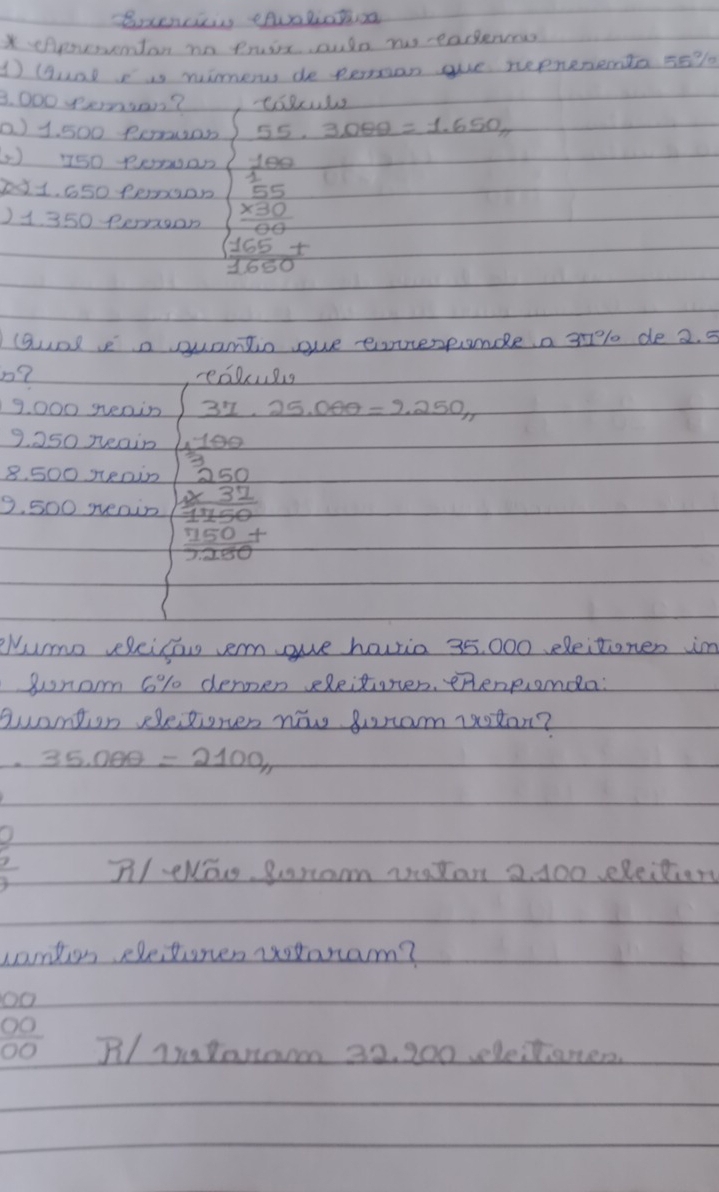 Exercício Avaliativo
* Apresentar na próxima aula no caderno
1) Qual é o número de pessoas que representa 55%
3.000 pessoas?
Cálculo
a) 1.500 pessoas
750 pessoas
1.650 pessoas
) 1.350 pessoas
55 . 3.000 = 1.650,,
100
1
55
x30
00
165 +
1650
) Qual é a quantia que corresponde a 37% de 2.5
?
cálculo
9.000 reais
9.250 reais
8.500 reais
9.500 reais
37 . 25.000 = 9.250,,
100
3
250
x 37
1750
750 +
9.250
Numa eleição em que havia 35.000 eleitores in
foram 6% desses eleitores. Responda:
Quantos eleitores não foram votar?
. 35.000 = 2100,,
0
R/ Não foram votar 2.100 eleitor
uantos eleitores votaram?
00
00
00
R/ votaram 32.900 eleitores.